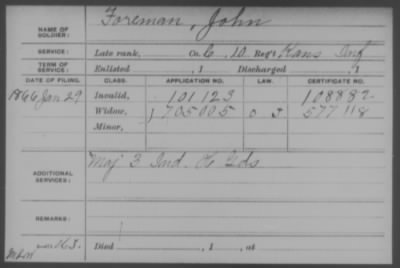 NAME OF SOLDIER: Foreman, John
SERVICE: Late rank, Co. C, 10 Reg't Kans Inf
TERM OF SERVICE: Enlisted , 1 Discharged , 1
DATE OF FILING. CLASS. APPLICATION NO. LAW. CERTIFICATE NO.
1866 Jan 29 Invalid, 101123 108882
Widow, 705005 577118
Minor,
ADDITIONAL SERVICES: Maj 3 Ind. H Gds
REMARKS:
Died , 1 , at